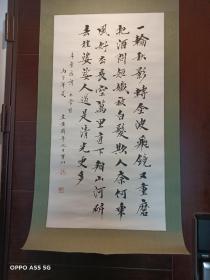 一輪秋影轉金波飛鏡又重磨
把酒問姮娥被白髮欺人奈何乘
風好去長空萬里直下看山河斫
去桂婆娑人道是清光更多
辛棄疾詞太常引
OPPO A55 5G